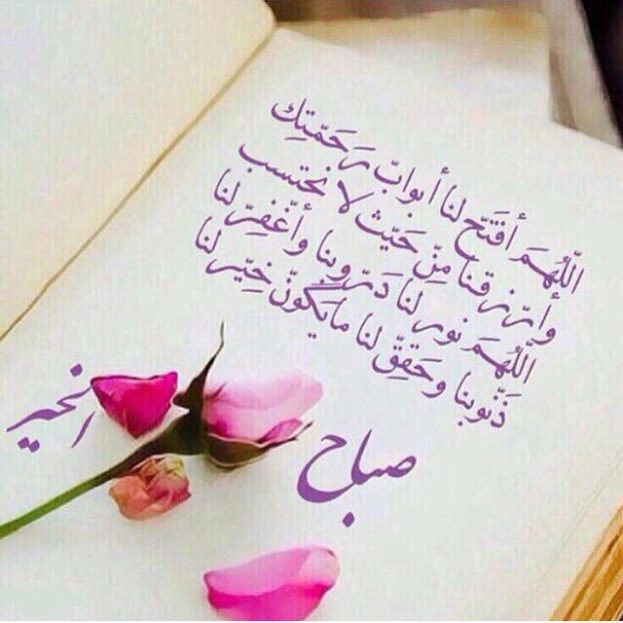 اللّهُمَ أفتَح لنا أبوابّ رَحَمّتِك
وأرّزقنا مِنّ حَيّث لا نحتسب
اللّهُمَ نور لنا دَرّوبنا وأغّفِرّ لنا
ذّنوبنا وحَقِقّ لنا مايَكّونّ خِيّر لنا
صباح
الخير